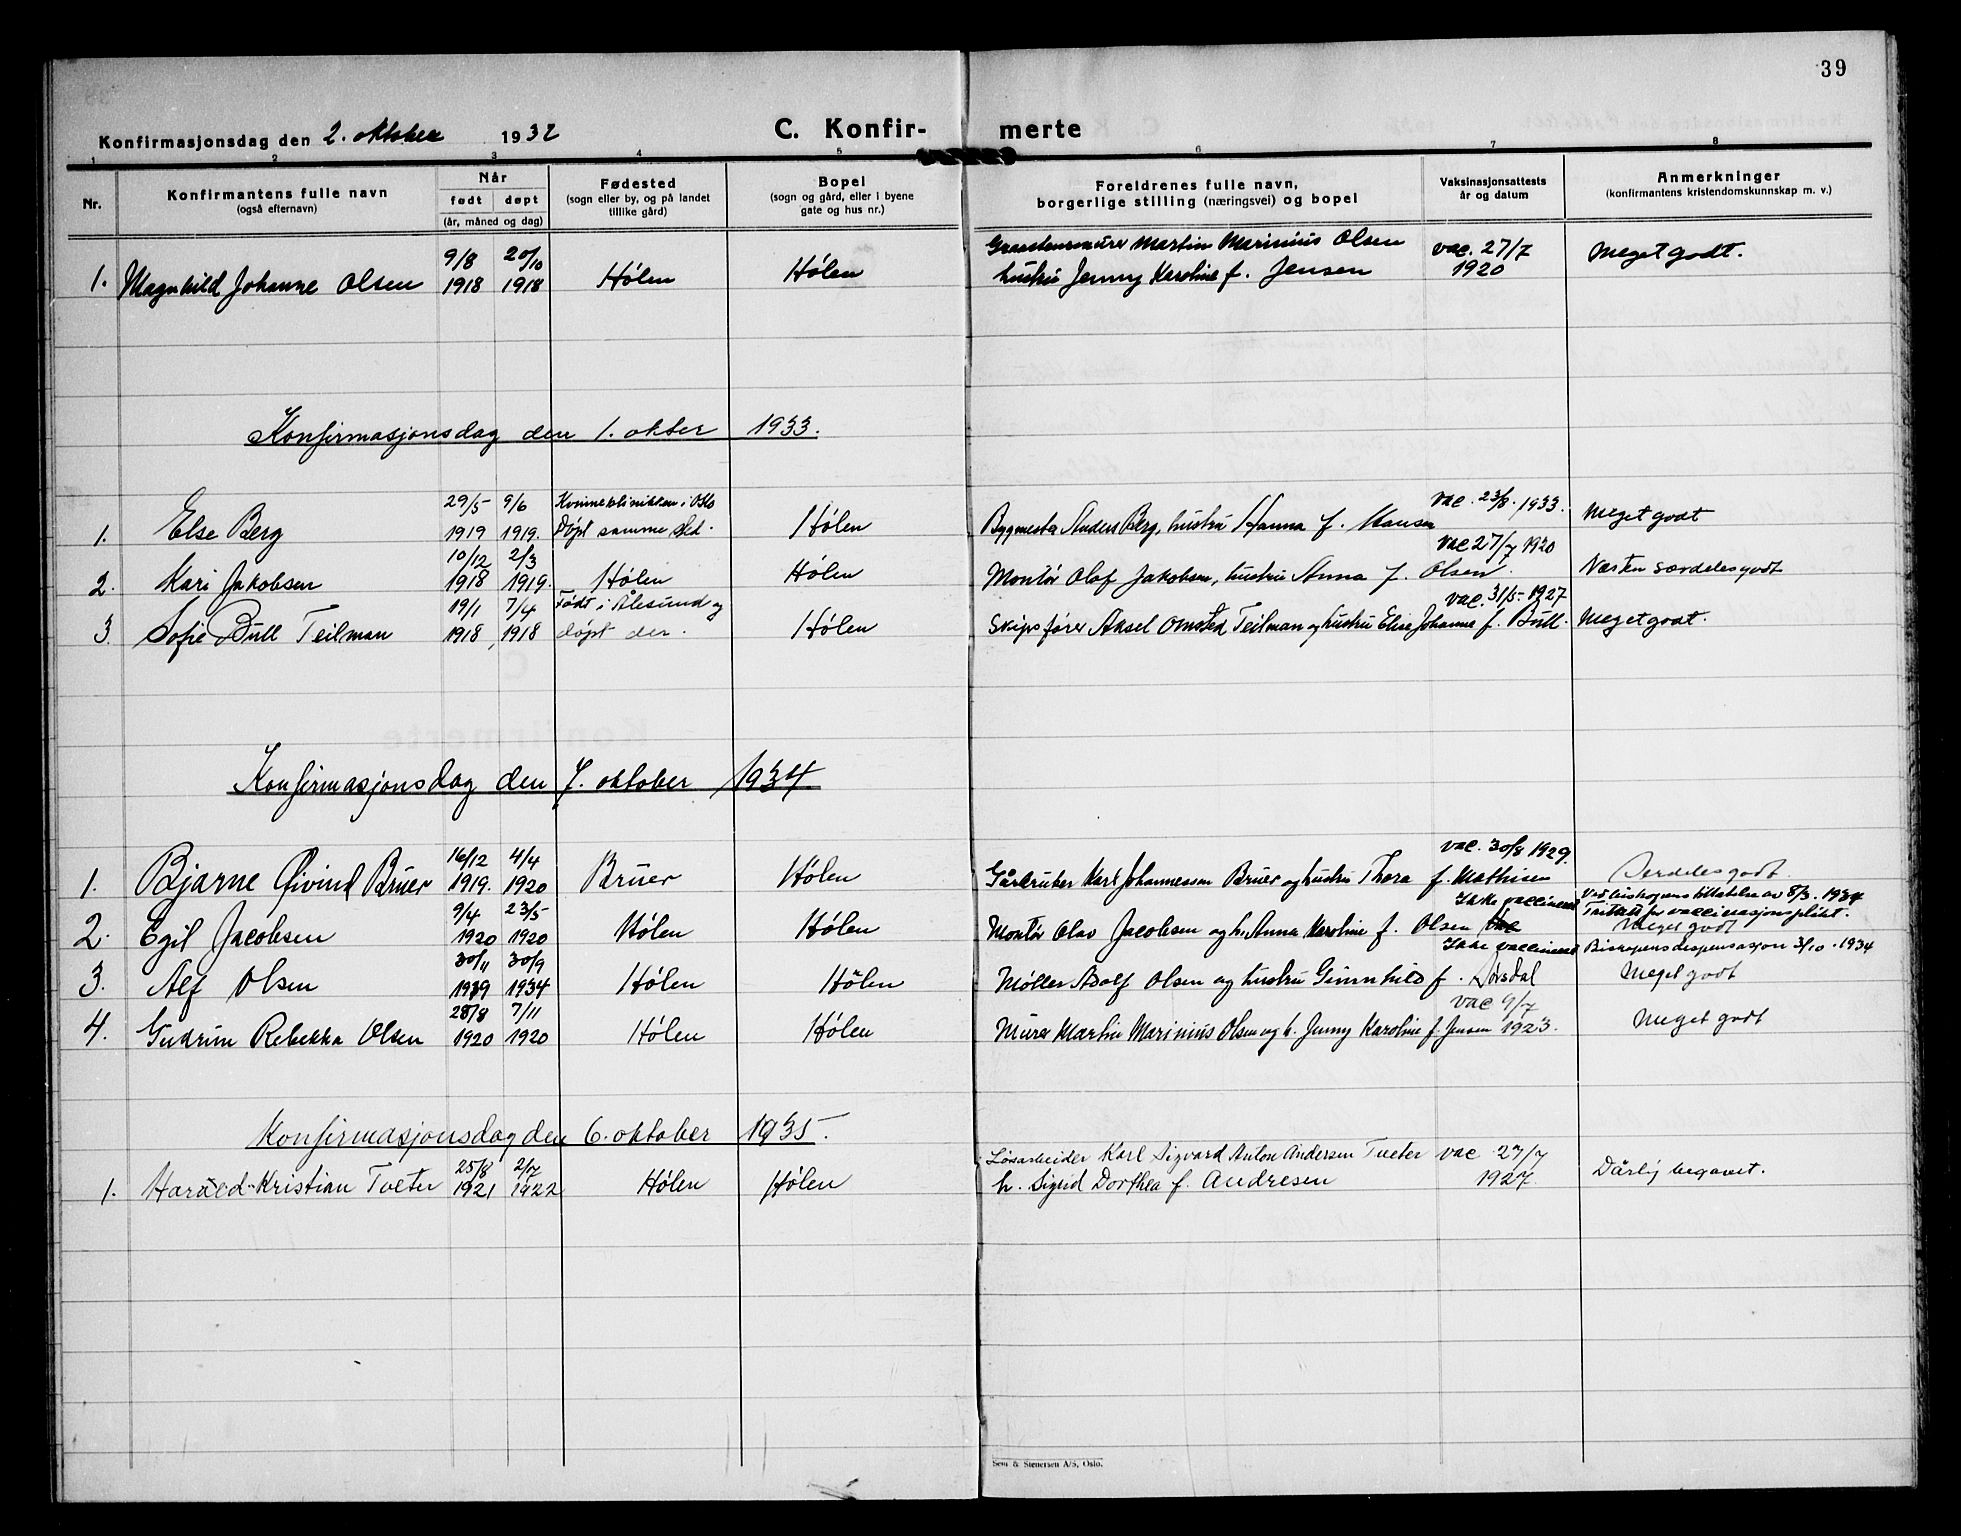 39
Konfirmasjonsdag den 2. oktober 1932
C. Konfir- merte
1 2 3 4 5 6 7 8
Nr.
Konfirmantens fulle navn
(også efternavn)
Når
født døpt
(år, måned og dag)
Fødested
(sogn eller by, og på landet
tillike gård)
Bopel
(sogn og gård, eller i byene
gate og hus nr.)
Foreldrenes fulle navn,
borgerlige stilling (næringsvei) og bopel
Vaksinasjonsattests
år og datum
Anmerkninger
(konfirmantens kristendomskunnskap m. v.)
9/8 20/10 Martin Marinius Olsen vac. 27/7
1. Magnhild Johanne Olsen 1918 1918 Hølen Hølen hustru Jenny Karoline f. Jensen 1920 Meget godt.
Konfirmasjonsdag den 1. okter 1933.
29/5 9/6 Kvinneklinikken i Oslo vac. 23/8. 1933.
1. Else Berg 1919 1919. Døpt samme sted. Hølen Bygmester Anders Berg, hustru Hanna f. Hansen Meget godt
10/12 2/3 vac 27/7 1920
2. Kari Jakobsen 1918 1919. Hølen Hølen Montør Olaf Jakobsen, hustru Anna f. Olsen Næsten særdeles godt
19/1 7/4 Født i Ålesund og vac. 31/5-1927
3. Sofie Bull Teilman 1918 1918 døpt der. Hølen Skipsfører Aksel Omsted Teilman og hustru Elise Johanne f. Bull. Meget godt.
Konfirmasjonsdag den 7. oktober 1934.
16/12 4/4 vac. 30/8 1929.
1. Bjarne Øivind Bruer 1919. 1920 Bruer Hølen Gårdbruker Karl Johannessen Bruer og hustru Thora f. Mathisen Særdeles godt.
9/4 23/5 Ikke vaccineret Ved biskopens tillatelse av 8/3. 1934
Fritatt for vaccinasjonsplikt.
2. Egil Jacobsen 1920 1920 Hølen Hølen Montør Olav Jacobsen og h. Anna Karoline f. Olsen vac Meget godt
30/11 30/9 Ikke vaccineret Biskopens dispensasjon 3/10. 1934
3. Alf Olsen 1919 1934 Hølen Hølen Møller Adolf Olsen og hustru Gunnhild f. Sørsdal Meget godt
28/8 7/11 vac 9/7
4. Gudrun Rebekka Olsen 1920 1920 Hølen Hølen Murer Martin Marinius Olsen og h. Jenny Karoline f. Jensen 1923. Meget godt
Konfirmasjonsdag den 6. oktober 1935.
25/8 2/7 Løsarbeider Karl Sigvard Anton Andersen Tveter vac 27/7
1. Harald Kristian Tveter 1921 1922 Hølen Hølen h. Sigrid Dorthea f. Andresen 1927. Dårlig begavet.
Sem & Stenersen A/S, Oslo.